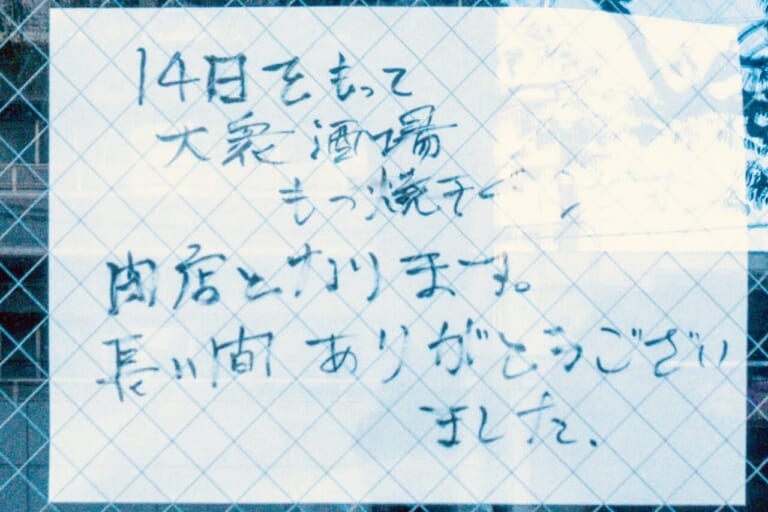 14日をもって
大衆酒場
もつ焼き
閉店となります。
長い間 ありがとうござい
ました.